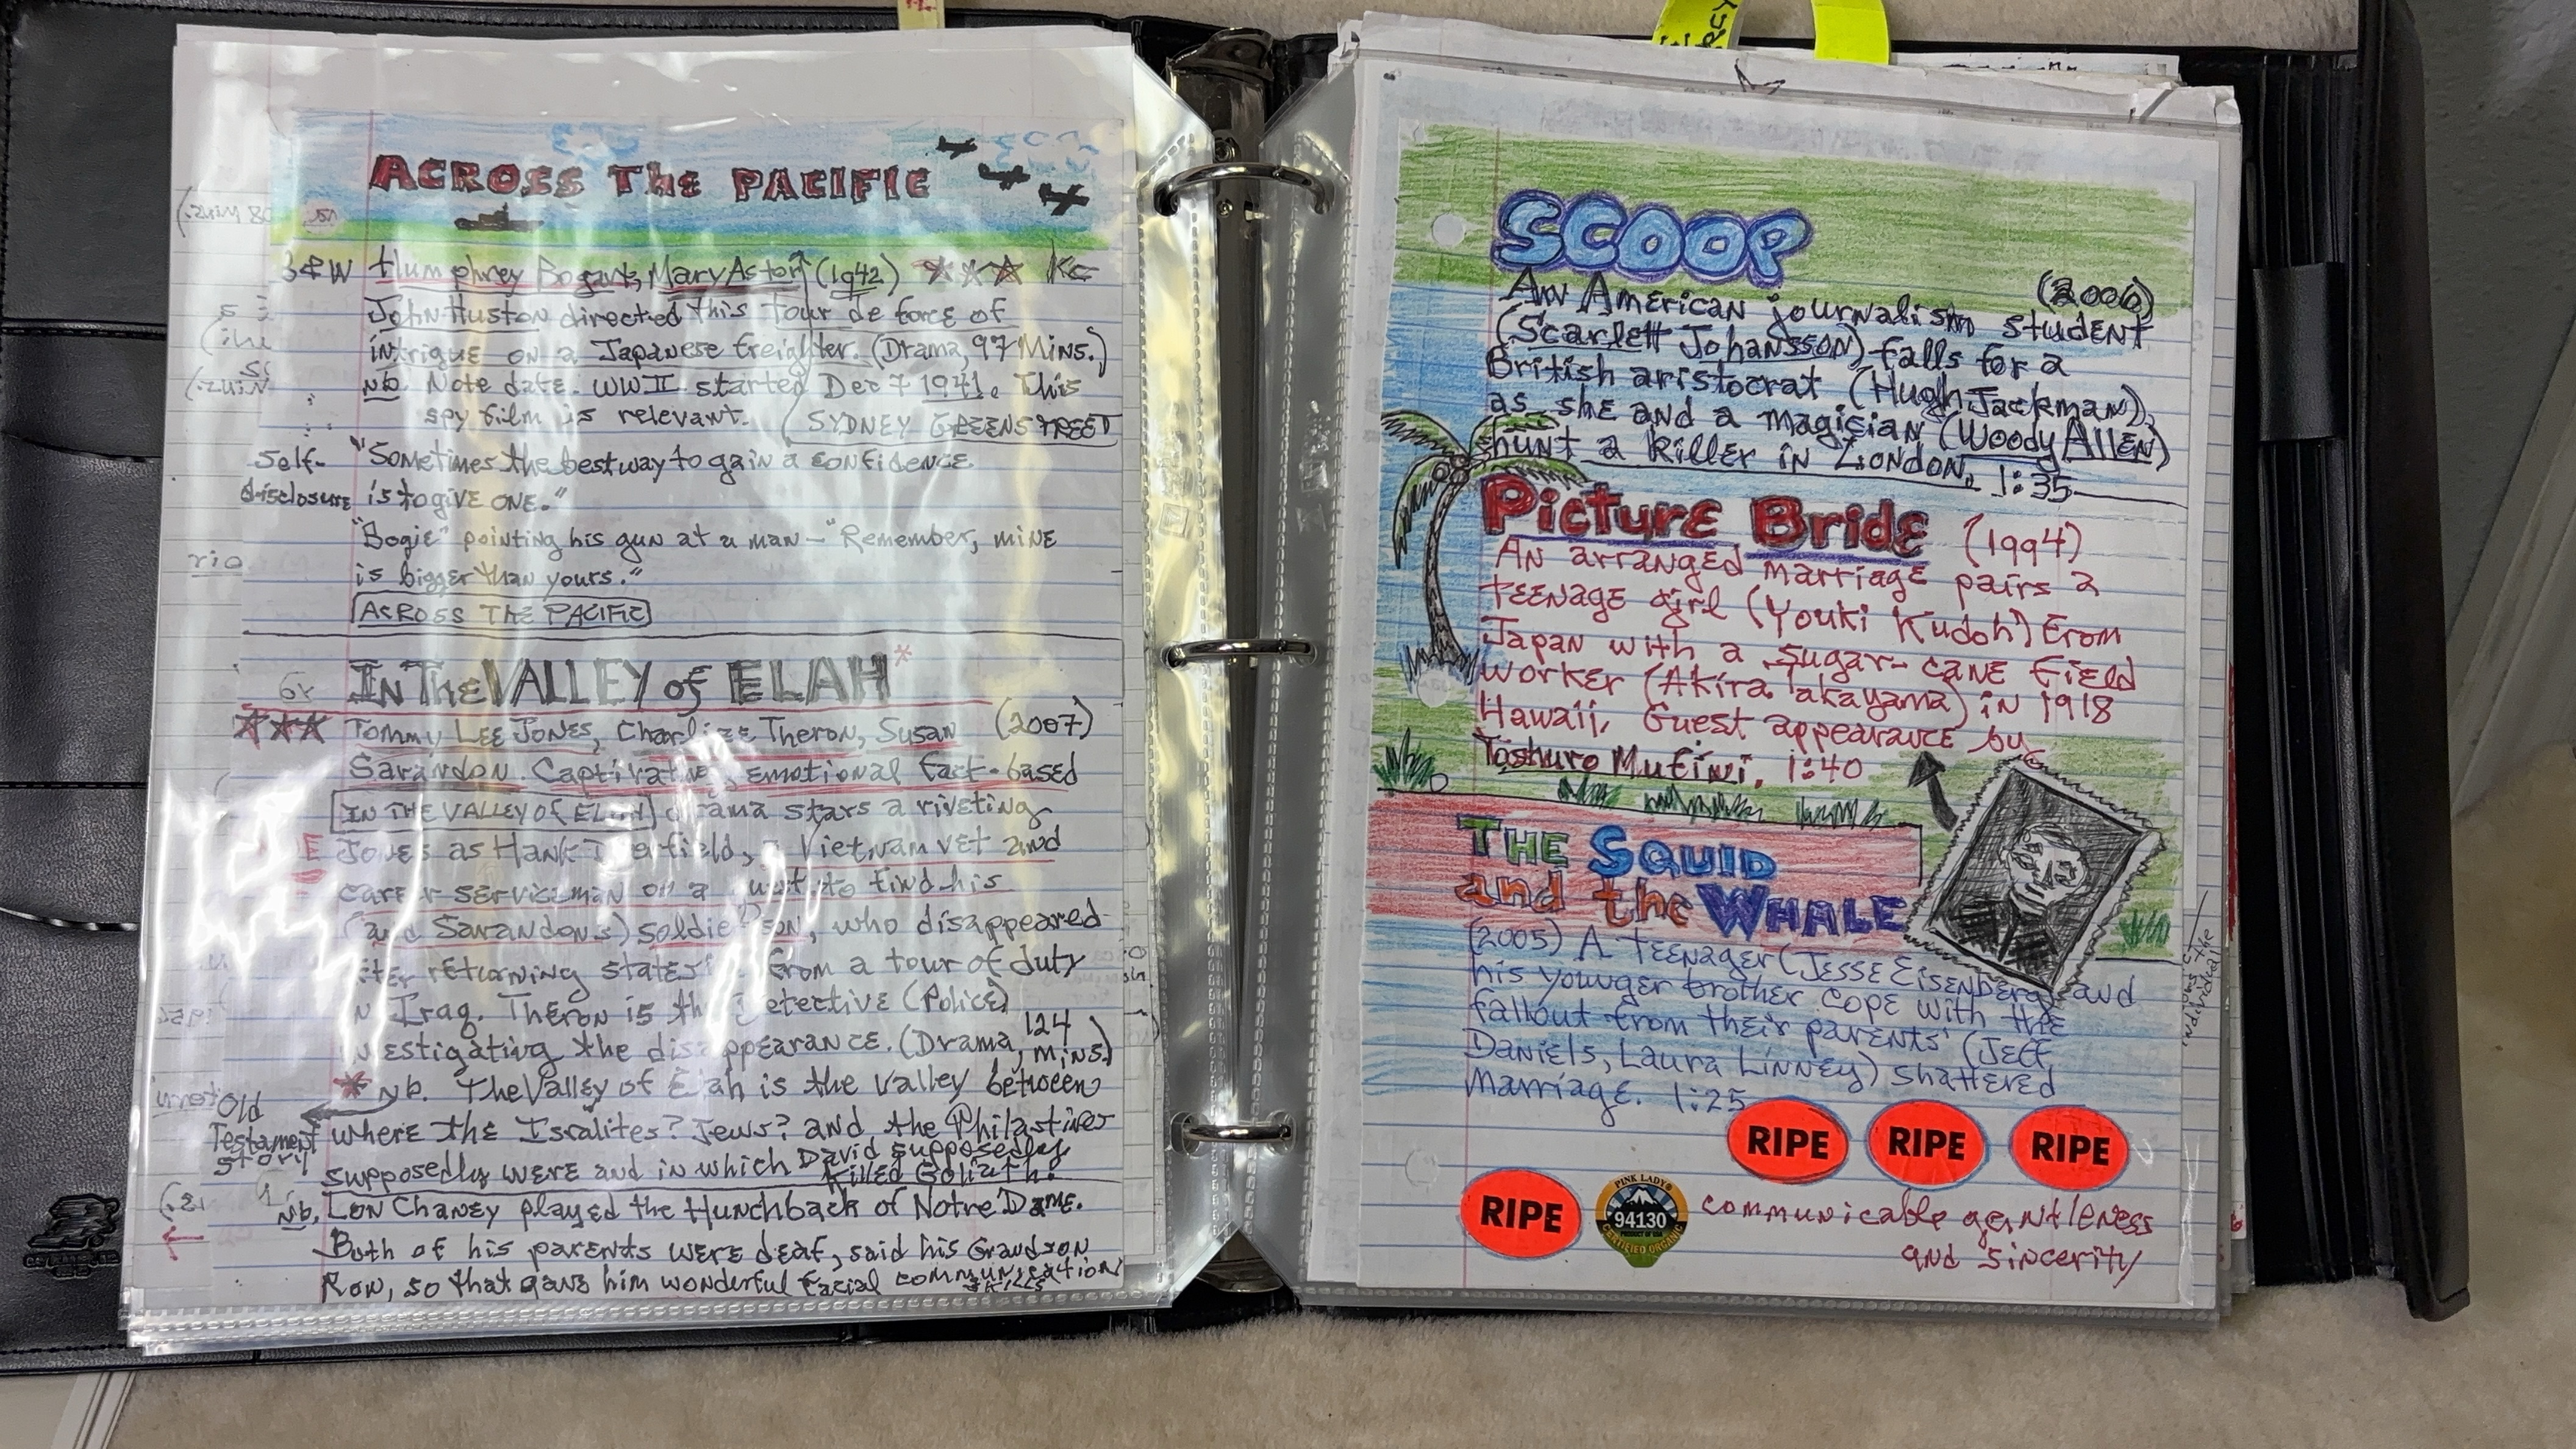 ACROSS The PACIFIC
B&W Humphrey Bogart, Mary Astor (1942)
John Huston directed this tour de force of
intrigue on a Japanese freighter. (Drama, 97 Mins.)
nb. Note date. WWII started Dec 7 1941. This
spy film is relevant. (SYDNEY GREENSTREET
Self-disclosure
"Sometimes the best way to gain a confidence
is to give one."
"Bogie" pointing his gun at a man - "Remember, mine
is bigger than yours."
ACROSS THE PACIFIC
In The VALLEY of ELAH*
Tommy Lee Jones, Charlize Theron, Susan (2007)
Sarandon. Captivating emotional fact-based
IN THE VALLEY of ELAH drama stars a riveting
Jones as Hank Deerfield, a Vietnam vet and
career serviceman on a quest to find his
(and Sarandon's) soldier son, who disappeared
after returning stateside from a tour of duty
in Iraq. Theron is the Detective (Police)
investigating the disappearance. (Drama, 124 mins.)
* nb. The Valley of Elah is the valley between
Old Testament story
where the Isralites? Jews? and the Philastines
supposedly were and in which David supposedly
killed Goliath!
Nb. Lon Chaney played the Hunchback of Notre Dame.
Both of his parents were deaf, said his Grandson
Ron, so that gave him wonderful facial communication
skills
SCOOP
(2006)
An American journalism student
(Scarlett Johansson) falls for a
British aristocrat (Hugh Jackman),
as she and a magician (Woody Allen)
hunt a killer in London. 1:35
Picture Bride (1994)
An arranged marriage pairs a
teenage girl (Youki Kudoh) from
Japan with a sugar-cane field
worker (Akira Takayama) in 1918
Hawaii. Guest appearance by
Toshuro Mufini. 1:40
THE SQUID
and the WHALE
(2005) A teenager (Jesse Eisenberg) and
his younger brother cope with the
fallout from their parents' (Jeff
Daniels, Laura Linney) shattered
marriage. 1:25
RIPE RIPE RIPE
RIPE
PINK LADY®
94130
CERTIFIED ORGANIC
communicable gentleness
and sincerity